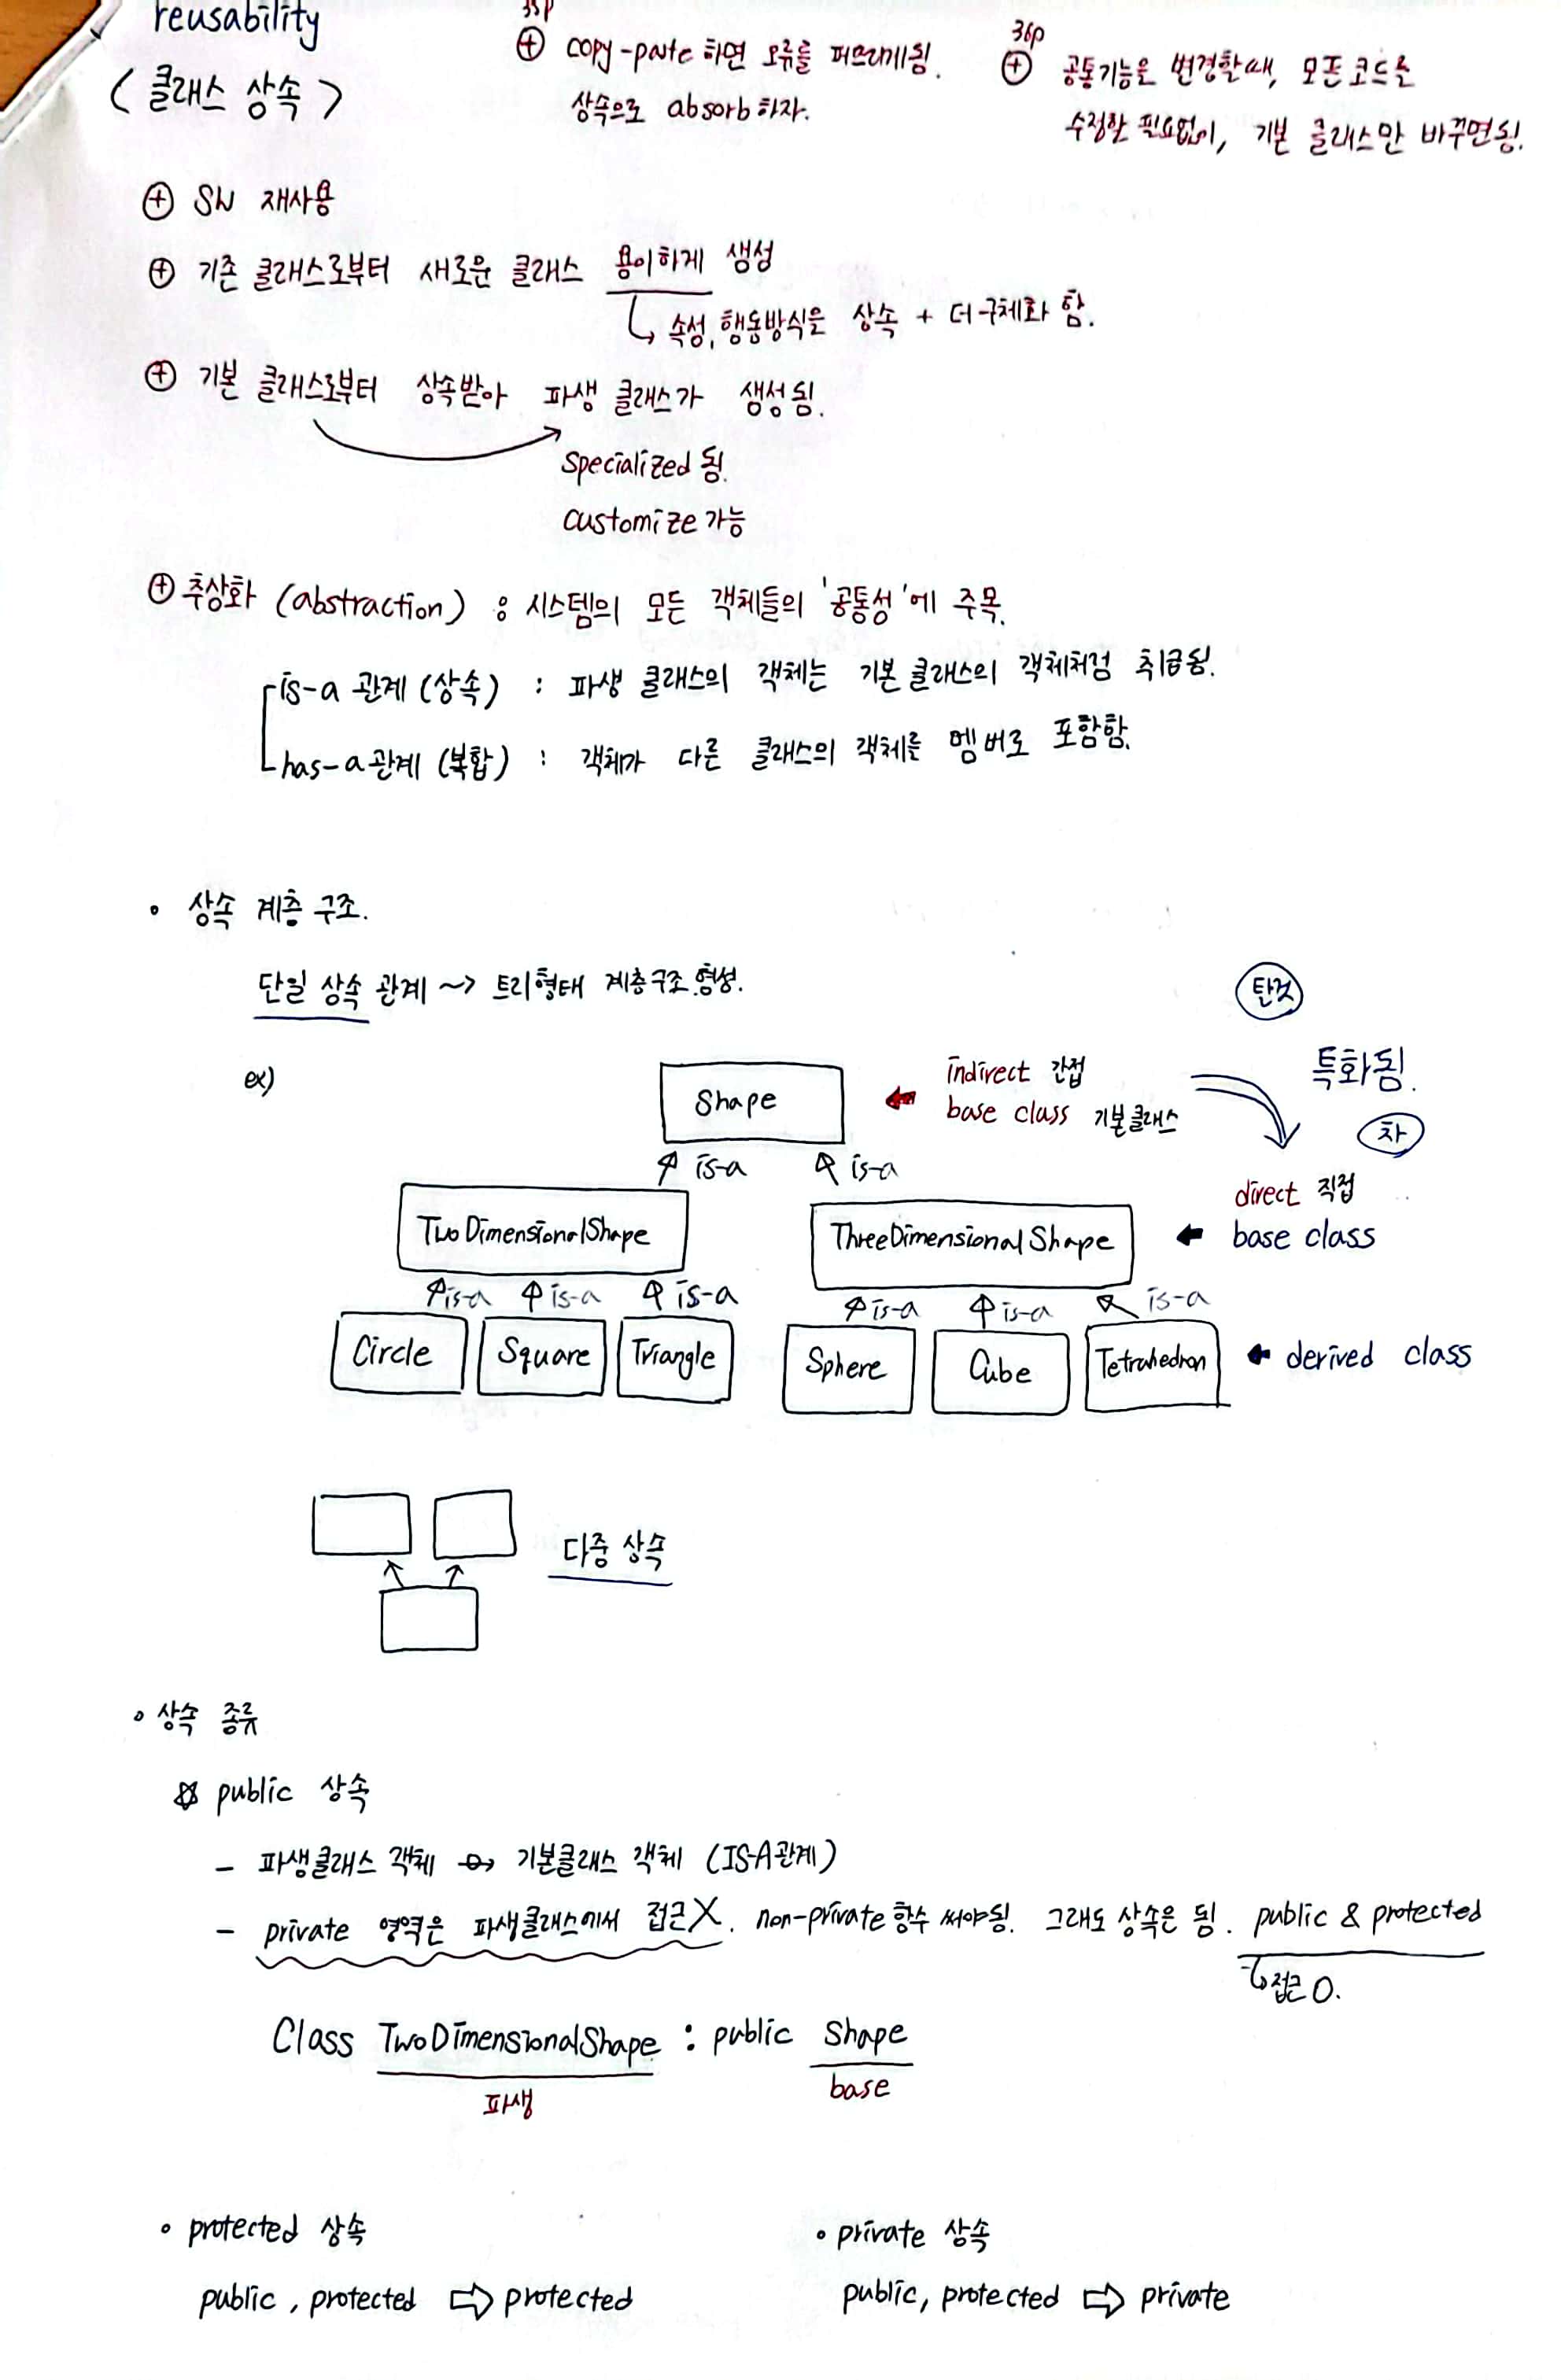 reusability
〈 클래스 상속 〉
35p
⊕ copy-paste 하면 오류를 퍼뜨리게됨.
상속으로 absorb 하자.
36p
⊕ 공통기능을 변경할때, 모든코드를
수정할 필요없이, 기본 클래스만 바꾸면됨.
⊕ SW 재사용
⊕ 기존 클래스로부터 새로운 클래스 용이하게 생성
↳ 속성, 행동방식을 상속 + 더 구체화 함.
⊕ 기본 클래스로부터 상속받아 파생 클래스가 생성됨.
specialized 됨.
customize 가능
⊕ 추상화 (abstraction) : 시스템의 모든 객체들의 '공통성'에 주목.
is-a 관계 (상속) : 파생 클래스의 객체는 기본 클래스의 객체처럼 취급됨.
has-a 관계 (복합) : 객체가 다른 클래스의 객체를 멤버로 포함함.
• 상속 계층 구조.
단일 상속 관계 ~> 트리형태 계층구조 형성.
탄것
특화됨.
차
ex)
Shape
← indirect 간접
base class 기본클래스
is-a is-a
TwoDimensionalShape ThreeDimensionalShape
← direct 직접
base class
is-a is-a is-a is-a is-a is-a
Circle Square Triangle Sphere Cube Tetrahedron ← derived class
다중 상속
• 상속 종류
☆ public 상속
- 파생클래스 객체 → 기본클래스 객체 (IS-A관계)
- private 영역은 파생클래스에서 접근X. non-private 함수 써야됨. 그래도 상속은 됨. public & protected
↳ 접근 O.
Class TwoDimensionalShape : public Shape
파생 base
• protected 상속
public, protected ⇨ protected
• private 상속
public, protected ⇨ private